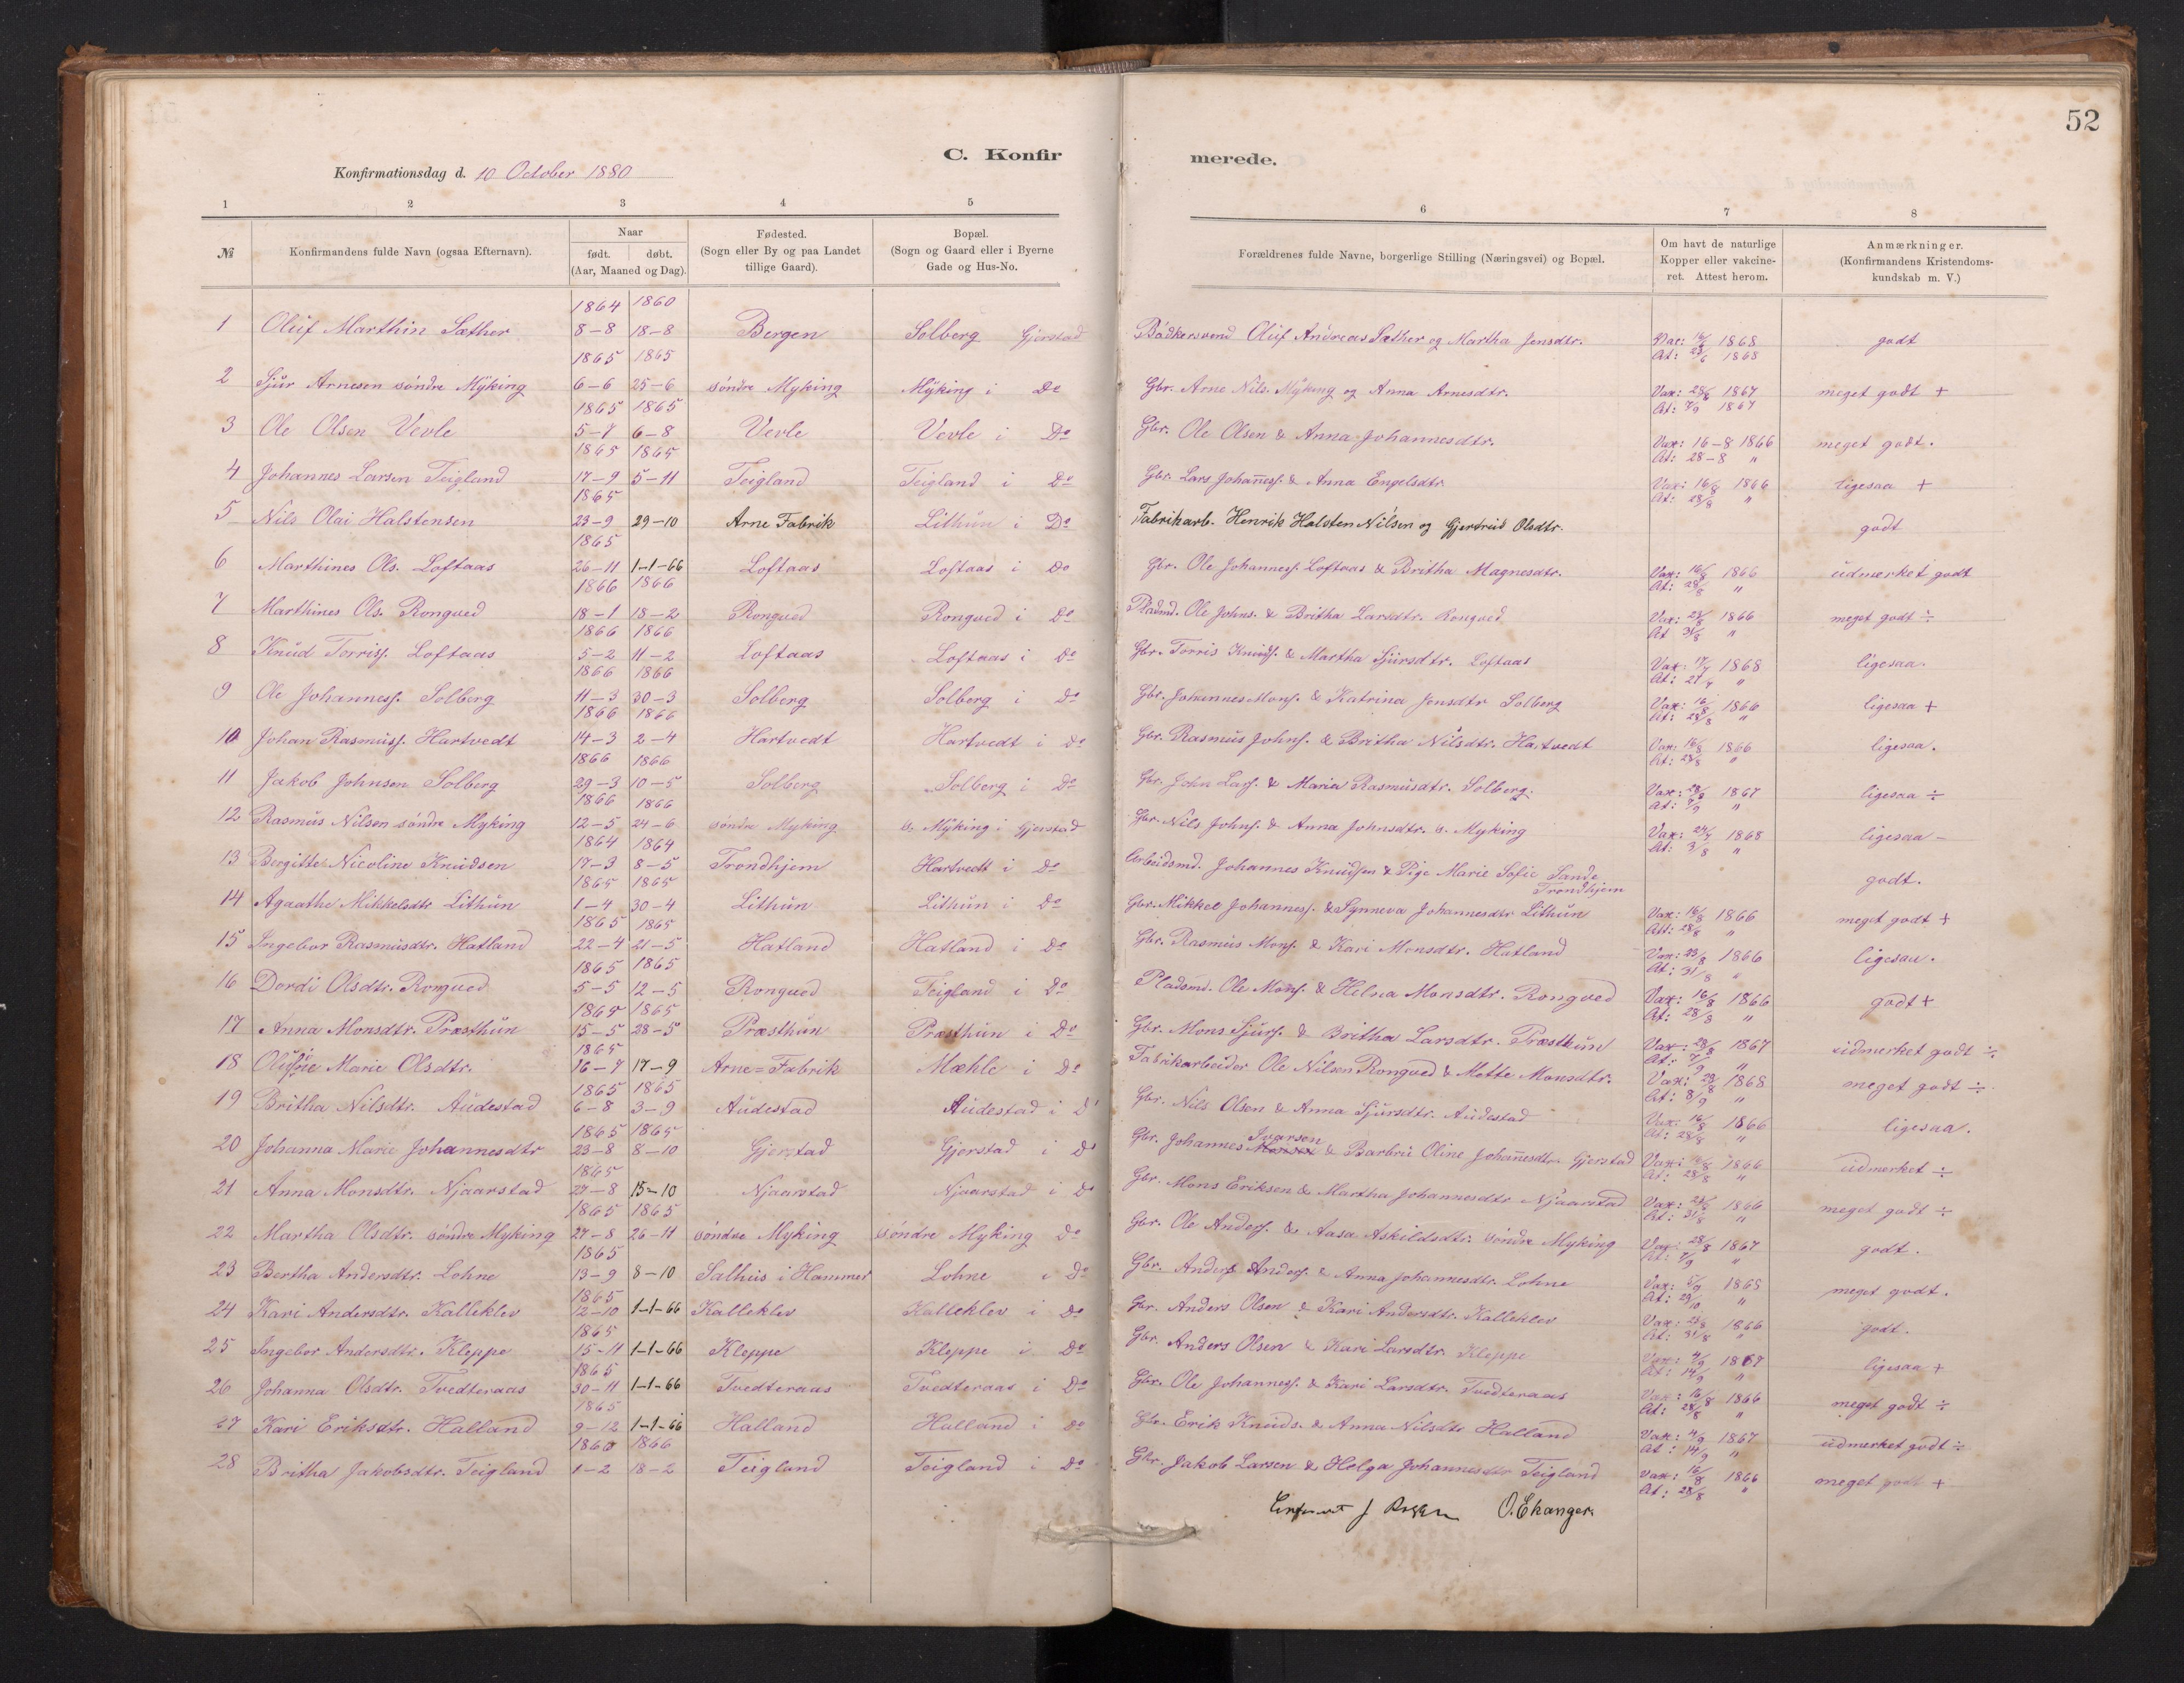 52
C. Konfirmerede.
Konfirmationsdag d. 10 October 1880
1 2 3 4 5 6 7 8
№ Konfirmandens fulde Navn (ogsaa Efternavn). Naar født. døbt. (Aar, Maaned og Dag). Fødested. (Sogn eller By og paa Landet tillige Gaard). Bopæl. (Sogn og Gaard eller i Byerne Gade og Hus-No. Forældrenes fulde Navne, borgerlige Stilling (Næringsvei) og Bopæl. Om havt de naturlige Kopper eller vakcineret. Attest herom. Anmærkninger. (Konfirmandens Kristendomskundskab m. V.)
1 Oluf Marthin Sæther 1864 8-8 1860 18-8 Bergen Solberg Gjerstad Bødkersvend Oluf Andreas Sæther og Martha Jensdtr. Vac: 1868 At: 1868 godt
2 Sjur Arnesen søndre Myking 1865 6-6 1865 25-6 søndre Myking Myking i Do Gbr. Arne Nils. Myking og Anna Arnesdtr. Vax: 28/8 1867 At: 7/9 1867 meget godt +
3 Ole Olsen Vevle 1865 5-7 1865 6-8 Vevle Vevle i Do Gbr. Ole Olsen & Anna Johannesdtr. Vax: 16-8 1866 At: 28-8 " meget godt.
4 Johannes Larsen Teigland 1865 17-9 1865 5-11 Teigland Teigland i Do Gbr. Lars Johanness. & Anna Engelsdtr Vax: 16/8 1866 At: 28/8 " ligesaa +
5 Nils Olai Halstensen 1865 23-9 29-10 Arne Fabrik Lithun i Do Fabrikarb. Henrik Halsten Nilsen og Gjertrud Olsdtr. godt
6 Marthines Ols. Loftaas 1865 26-11 1-1-66 Loftaas Loftaas i Do Gbr. Ole Johanness. Loftaas & Britha Magnesdtr. Vax: 16/8 1866 At: 28/8 " udmerket godt
7 Marthines Ols. Rongved 1866 18-1 1866 18-2 Rongved Rongved i Do Pladsmd. Ole Johns. & Britha Larsdtr. Rongved Vax: 23/8 1866 At 31/8 " meget godt ÷
8 Knud Torriss. Loftaas 1866 5-2 1866 11-2 Loftaas Loftaas i Do Gbr. Torris Knuds. & Martha Sjursdtr. Loftaas Vax: 1868 At: " ligesaa.
9 Ole Johanness. Solberg 1866 11-3 1866 30-3 Solberg Solberg i Do Gbr. Johannes Mons. & Katrina Jensdtr Solberg Vax: 16/8 1866 At: 28/8 " ligesaa +
10 Johan Rasmuss. Hartvedt 1866 14-3 1866 2-4 Hartvedt Hartvedt i Do Gbr. Rasmus Johns. & Britha Nilsdtr. Hartvedt Vax: 16/8 1866 At: 28/8 " ligesaa.
11 Jakob Johnsen Solberg 1866 29-3 1866 10-5 Solberg Solberg i Do Gbr. John Lars. & Maria Rasmusdtr. Solberg. Vax: 28/8 1867 At: 7/9 " ligesaa ÷
12 Rasmus Nilsen søndre Myking 1866 12-5 1866 24-6 søndre Myking s. Myking i Gjerstad Gbr. Nils Johns. & Anna Johnsdtr. s. Myking Vax: 24/7 1868 At: 3/8 " ligesaa -
13 Bergitte Nicoline Knudsen 1864 17-3 1864 8-5 Trondhjem Hartvedt i Do Arbeidsmd. Johannes Knudsen & Pige Marie Sofie Sande Trondhjem godt.
14 Agaathe Mikkelsdtr Lithun 1865 1-4 1865 30-4 Lithun Lithun i Do Gbr. Mikkel Johanness. & Synneva Johannesdtr Lithun Vax: 16/8 1866 Att: 28/8 " meget godt +
15 Ingebor Rasmusdtr. Hatland 1865 22-4 1865 21-5 Hatland Hatland i Do Gbr. Rasmus Mons. & Kari Monsdtr. Hatland Vax: 23/8 1866 At: 31/8 " ligesaa.
16 Dordi Olsdtr. Rongved 1865 5-5 1865 12-5 Rongved Teigland i Do Pladsmd. Ole Mons. & Helna Monsdtr. Rongved Vax: 16/8 1866 At: 28/8 " godt +
17 Anna Monsdtr. Præsthun 1865 15-5 1865 28-5 Præsthun Præsthun i Do Gbr. Mons Sjurs. & Britha Larsdtr. Præsthun Vax: 28/8 1867 At: 7/9 " udmerket godt ÷
18 Marie Olsdtr. 1865 16-7 17-9 Arne=Fabrik Mæhle i Do Fabrikarbeider Ole Nilsen Rongved & Mette Monsdtr. Vax: 1868 At: 8/9 " meget godt ÷
19 Britha Nilsdtr. Audestad 1865 6-8 1865 3-9 Audestad Audestad i Do Gbr. Nils Olsen & Anna Sjursdtr. Audestad Vax: 16/8 1866 At: 28/8 " ligesaa.
20 Johanna Marie Johannesdtr 1865 23-8 1865 8-10 Gjerstad Gjerstad i Do Gbr. Johannes Ivarsen & Barbru Oline Johannesdtr. Gjerstad Vax: 16/8 1866 At: 28/8 " udmerket ÷
21 Anna Monsdtr. Njaarstad 1865 27-8 15-10 Njaarstad Njaarstad i Do Gbr. Mons Eriksen & Martha Johannesdtr Njaarstad Vax: 23/8 1866 At: 31/8 " meget godt ÷
22 Martha Olsdtr. søndre Myking 1865 27-8 1865 26-11 søndre Myking søndre Myking Do Gbr. Ole Anders. & Aasa Askildsdtr. søndre Myking Vax: 28/8 1867 At: 7/9 " godt.
23 Bertha Andersdtr. Lohne 1865 13-9 8-10 Salhus i Hammer Lohne i Do Gbr. Anders Anders. & Anna Johannesdtr. Lohne Vax: 1868 At: 29/10 " meget godt.
24 Kari Andersdtr. Kalleklev 1865 12-10 1-1-66 Kalleklev Kalleklev i Do Gbr. Anders Olsen & Kari Andersdtr. Kalleklev Vax: 23/8 1866 At: 31/8 " godt.
25 Ingebor Andersdtr. Kleppe 1865 15-11 1-1-66 Kleppe Kleppe i Do Gbr. Anders Olsen & Kari Larsdtr. Kleppe Vax: 4/9 1867 At: 14/9 " ligesaa +
26 Johanna Olsdtr. Tvedteraas 1865 30-11 1-1-66 Tvedteraas Tvedteraas i Do Gbr. Ole Johanness. & Kari Larsdtr. Tvedteraas Vax: 16/8 1866 At: 28/8 " meget godt ÷
27 Kari Eriksdtr. Halland 1865 9-12 1-1-66 Halland Halland i Do Gbr. Erik Knuds. & Anna Nilsdtr Halland Vax: 4/9 1867 At: 14/9 " udmerket godt ÷
28 Britha Jakobsdtr. Teigland 1866 1-2 1866 18-2 Teigland Teigland i Do Gbr. Jakob Larsen & Helga Johannesdtr Teigland Vax: 16/8 1866 At: 28/8 " meget godt +
O. Ekanger.